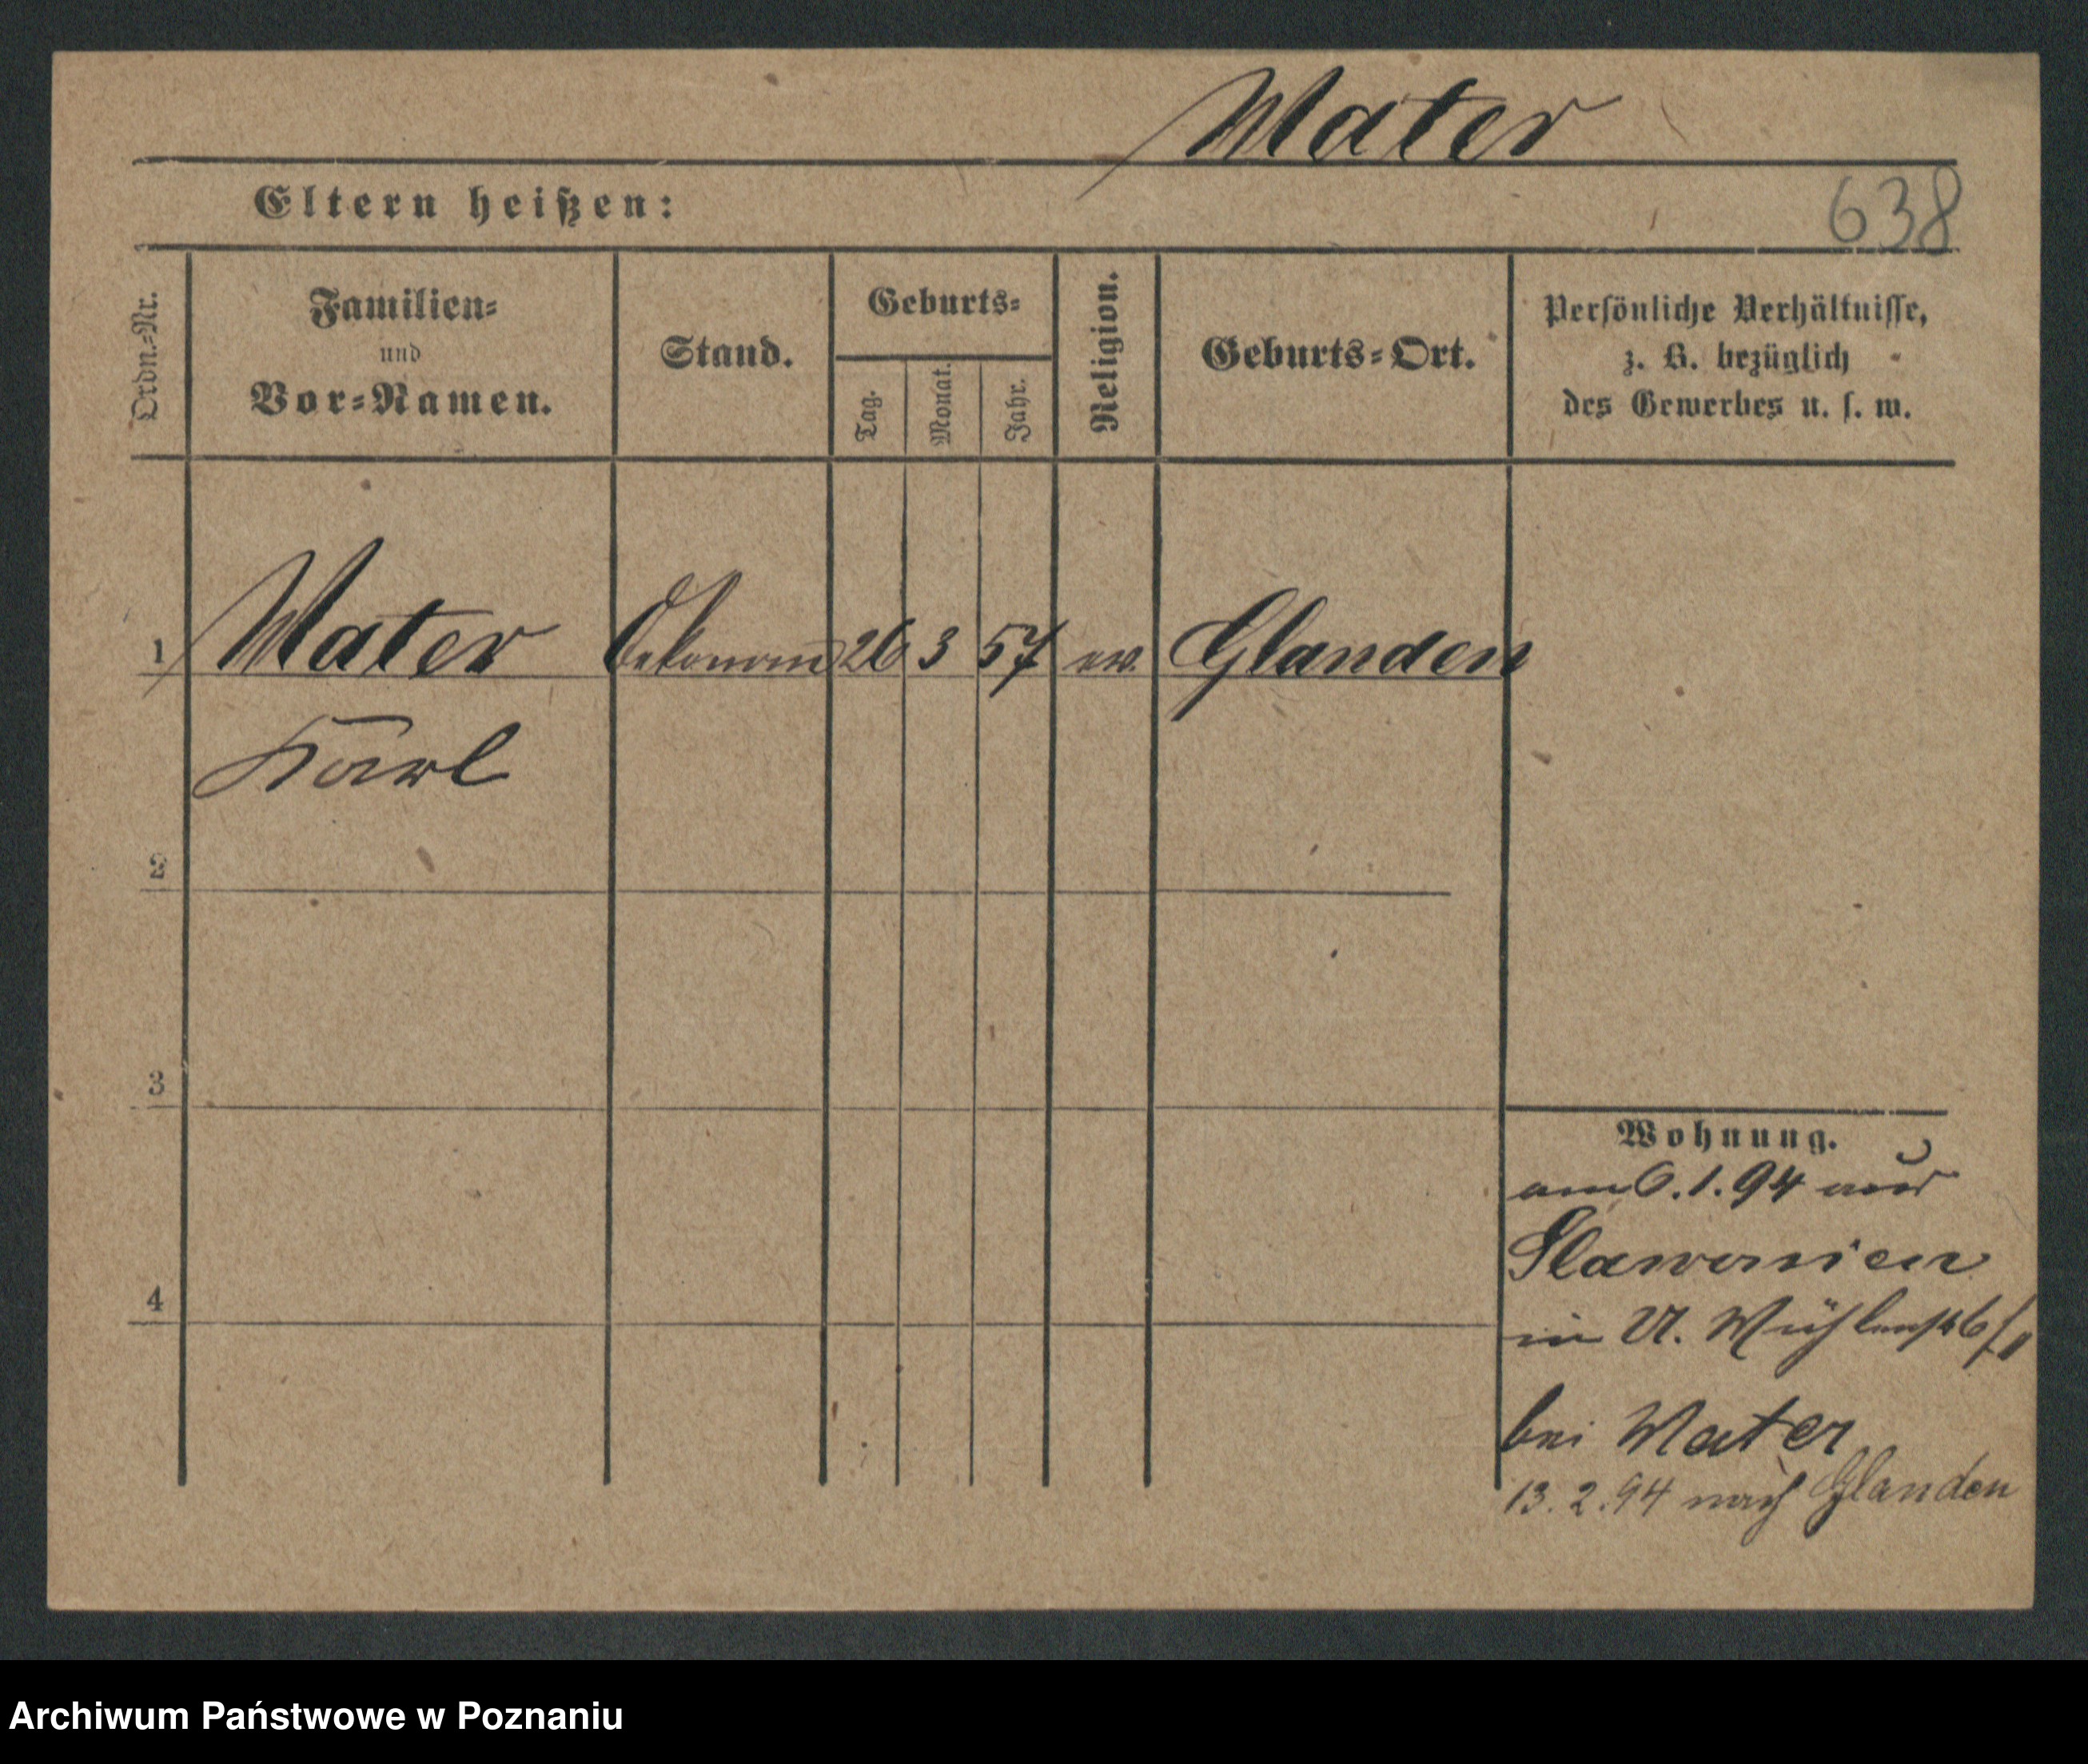 Mater
Eltern heißen:
638
Ordn.-Nr.
Familien-
und
Vor-Namen.
Stand.
Geburts-
Tag.
Monat.
Jahr.
Religion.
Geburts-Ort.
Persönliche Verhältnisse,
z. B. bezüglich
des Gewerbes u. s. w.
1 Mater Oekonom 26 3 57 ev. Glanden
Karl
2
3
4
Wohnung.
am 6.1.94 aus
Slawonien
in U. Mühlenst
bei Mater
13.2.94 nach Glanden
Archiwum Państwowe w Poznaniu